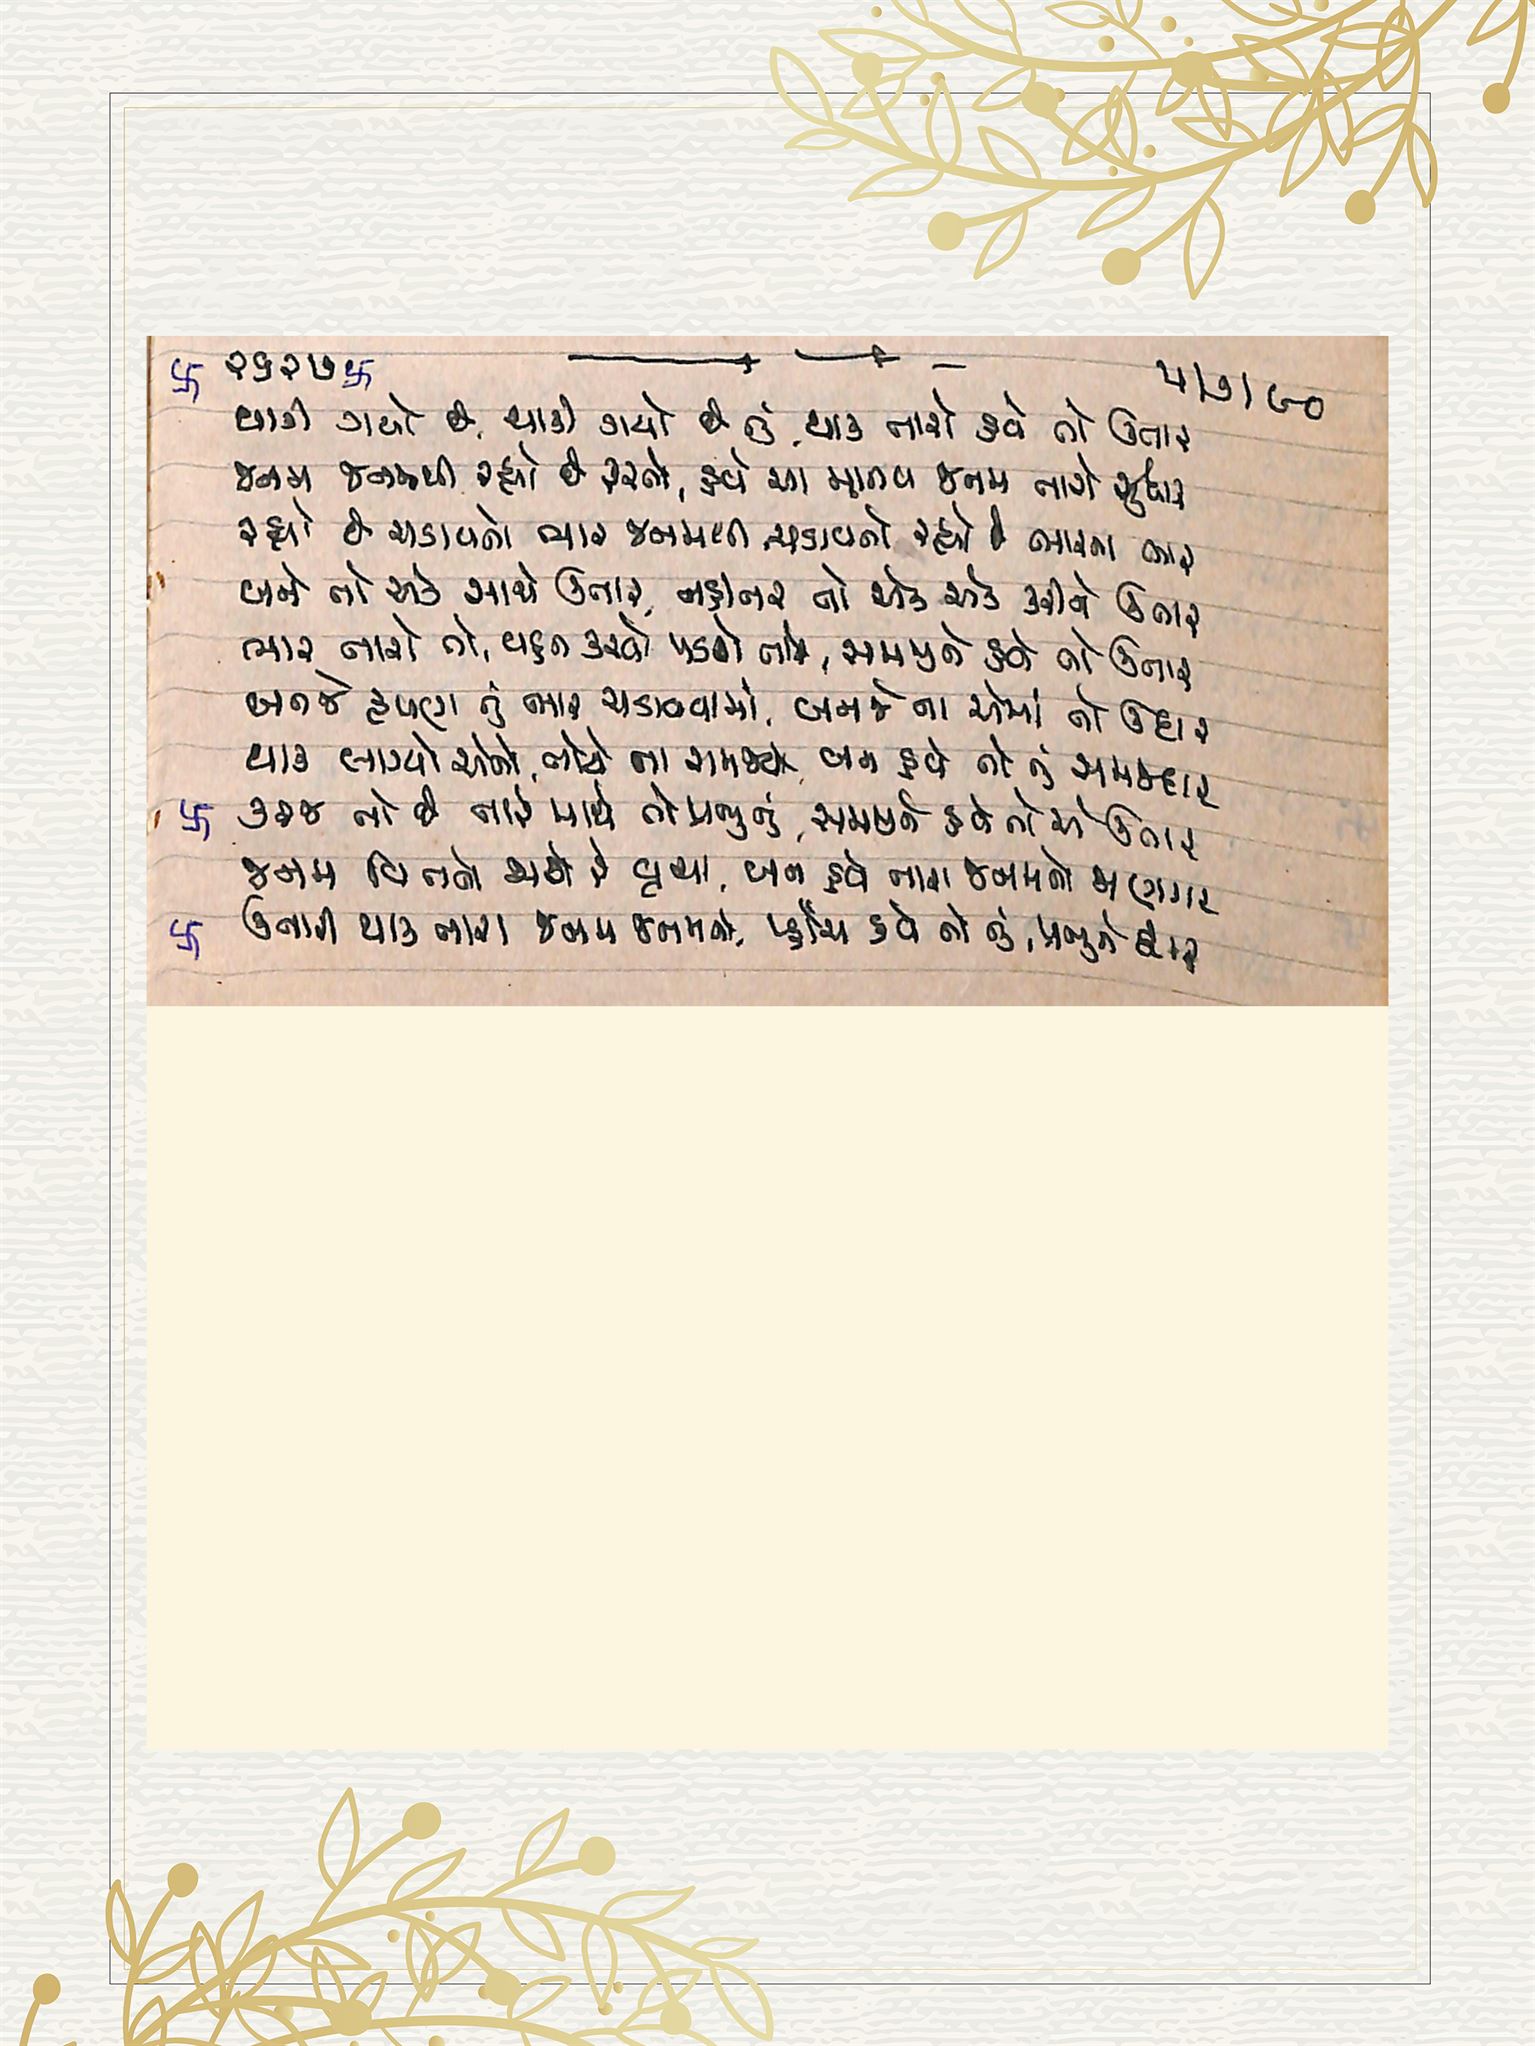 卐 ૨૬૨૭ 卐 ૫/૭/૯૦
થાકી ગયો છે, થાકી ગયો છે તું, થાક તારો હવે તો ઉતાર
જનમ જનમથી રહ્યો છે ફરતો, હવે આ માનવ જનમ તારો સુધાર
રહ્યો છે ચડાવતો ભાર જનમથી, ચડાવતો રહ્યો છે ભારના ભાર
બને તો એક સાથે ઉતાર, નહીંતર તો એક એક કરીને ઉતાર
ભાર તારો તો, વહન કરવો પડશે તારે, સમજીને હવે તો ઉતાર
બનજે કૃપણ તું ભાર ચડાવવામાં, બનજે ના એમાં તો ઉદાર
થાક લાગ્યો એનો, તોયે ના સમજ્યો, બન હવે તો તું સમજદાર
卐 કરજ તો છે તારે માથે તો પ્રભુનું, સમજીને હવે તો એ ઉતાર
જનમ વિતતો જાશે રે વૃથા, બન હવે તારા જનમનો શણગાર
卐 ઉતારી થાક તારા જનમ જનમનો, પહોંચ હવે તો તું, પ્રભુને દ્વાર